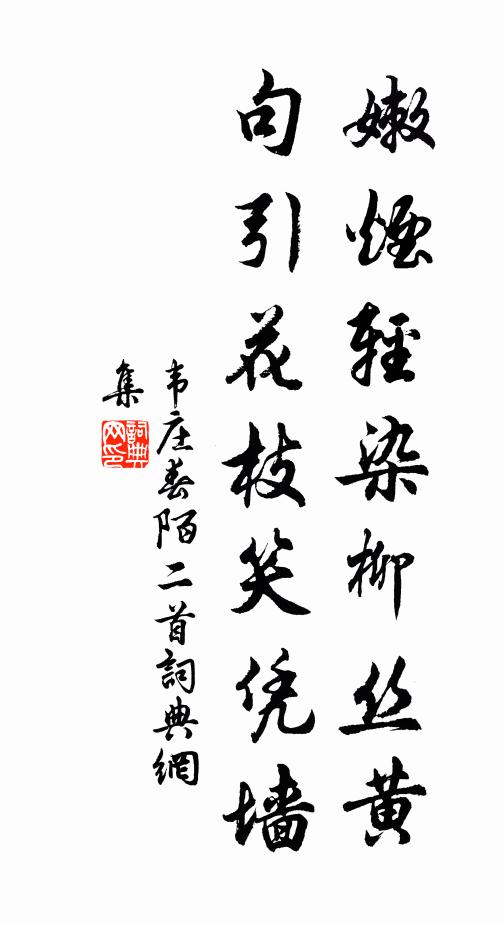 嫩煙輕染柳丝黄
句引花枝笑凭墙
韦庄春陌二首詞典網
集
詞典网印